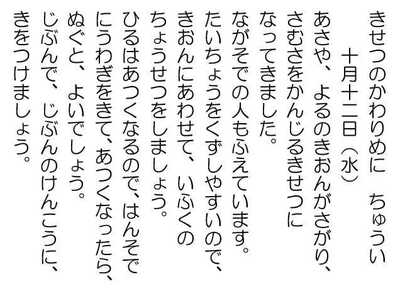 きせつのかわりめに　ちゅうい
十月十二日（水）
あさや、よるのきおんがさがり、
さむさをかんじるきせつに
なってきました。
ながそでの人もふえています。
たいちょうをくずしやすいので、
きおんにあわせて、いふくの
ちょうせつをしましょう。
ひるはあつくなるので、はんそで
にうわぎをきて、あつくなったら、
ぬぐと、よいでしょう。
じぶんで、じぶんのけんこうに、
きをつけましょう。